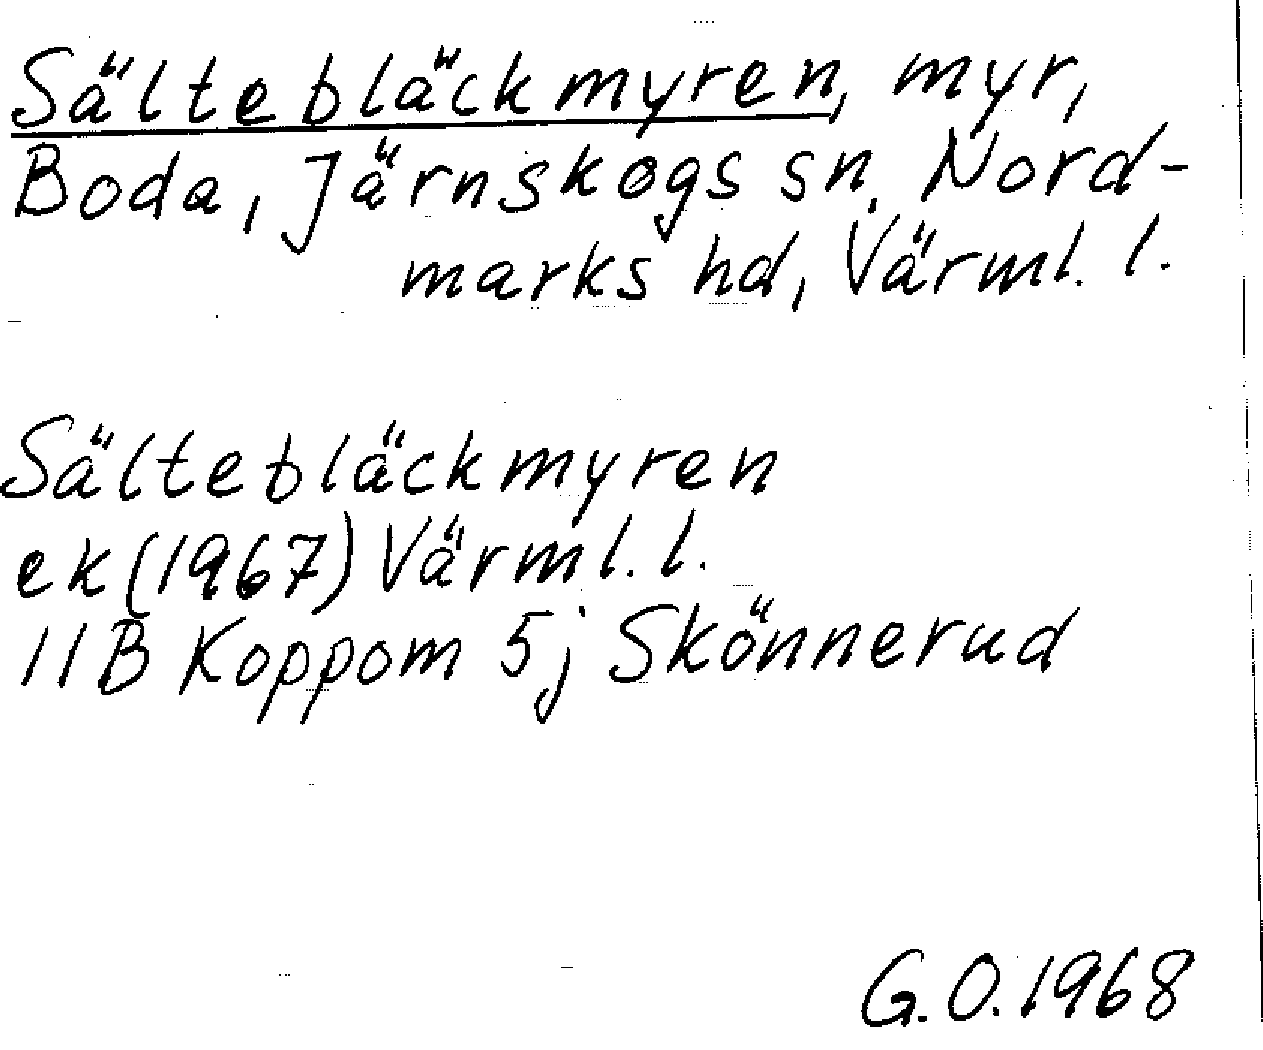 Sältebläckmyren, myr,
Boda, Järnskogs sn, Nord-
marks hd, Värml. l.
Sältebläckmyren
ek (1967) Värml. l.
11B Koppom 5j Skönnerud
G.O. 1968